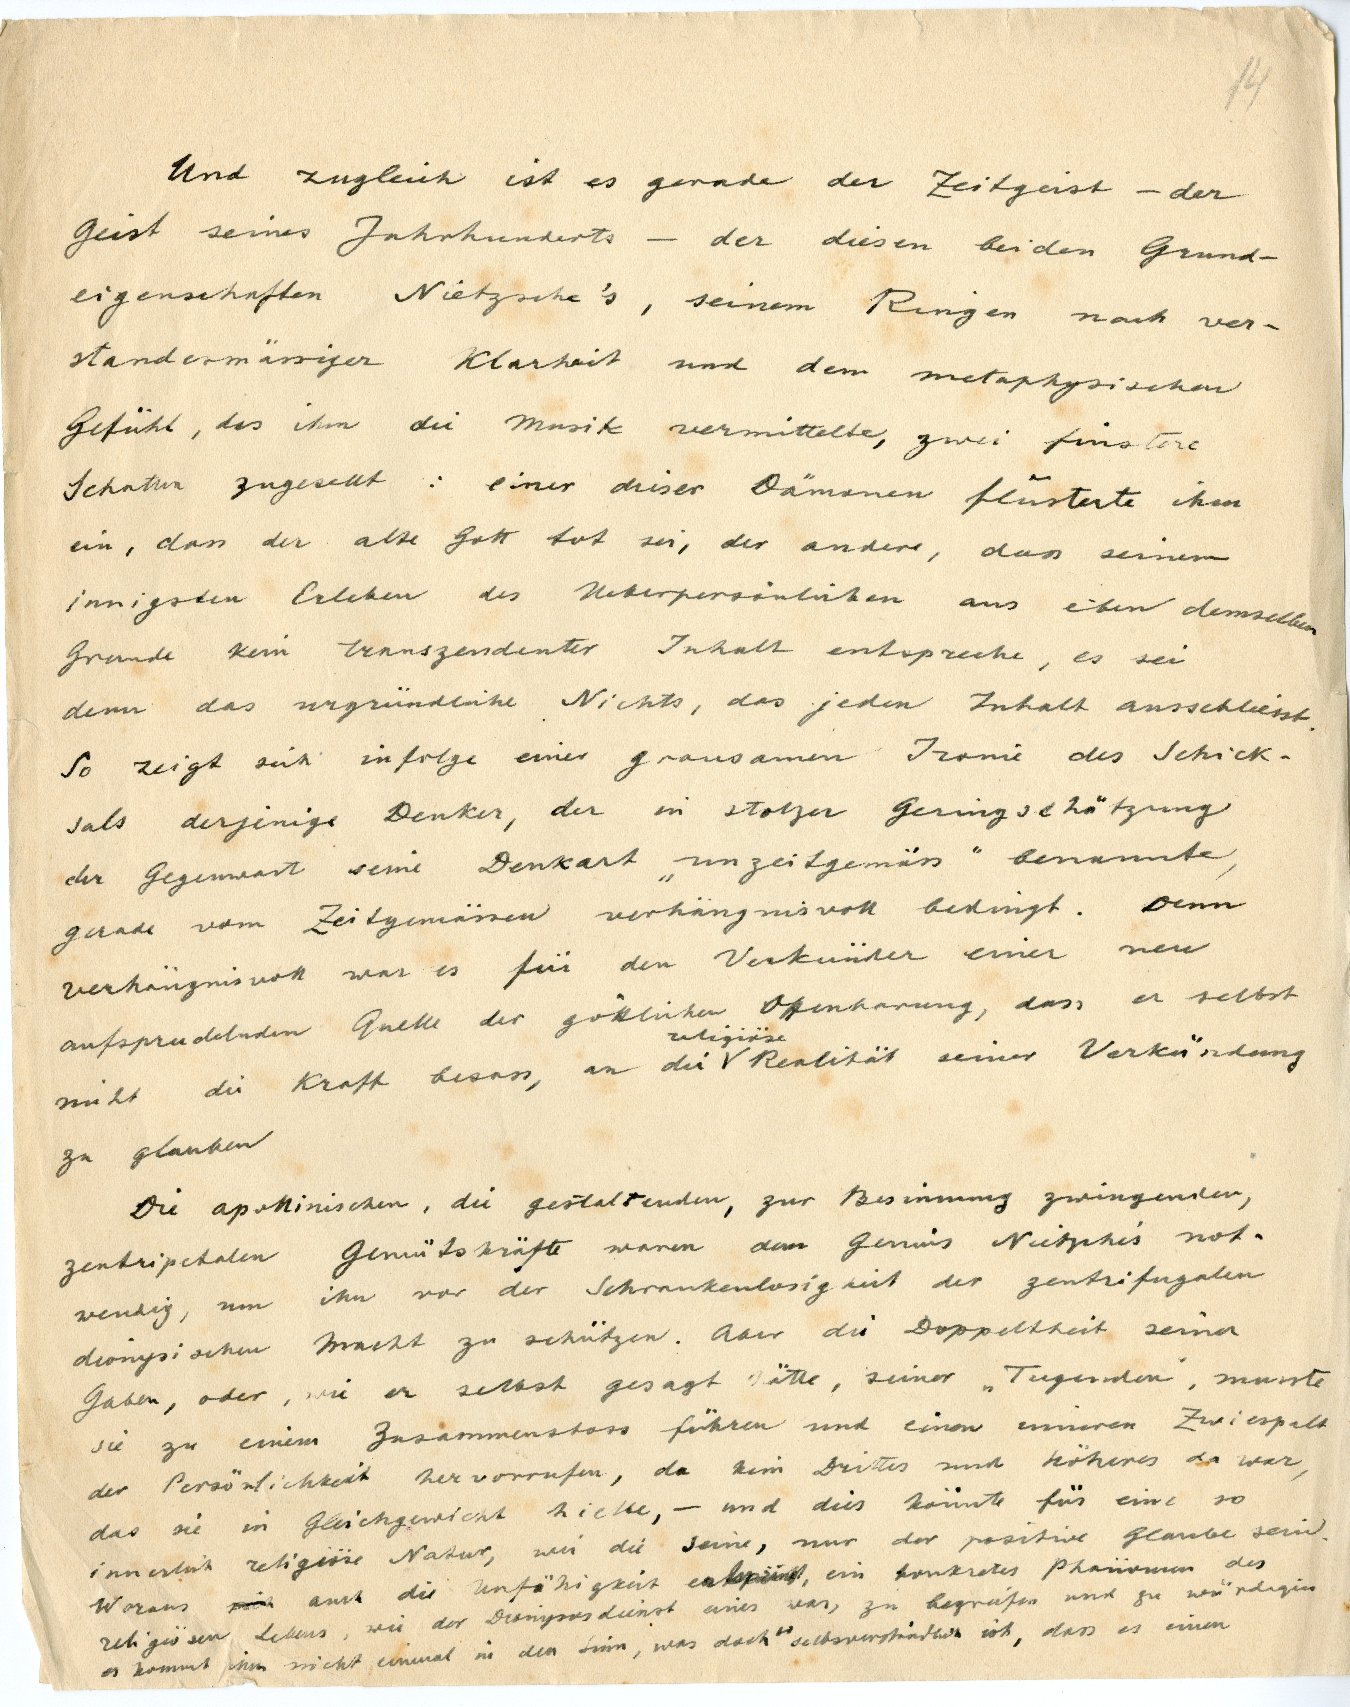 14
Und zugleich ist es gerade der Zeitgeist – der
Geist seines Jahrhunderts – der diesen beiden Grund-
eigenschaften Nietzsche's, seinem Ringen nach ver-
standesmässiger Klarheit und dem metaphysischen
Gefühl, das ihm die Musik vermittelte, zwei finstere
Schatten zugesellt: einer dieser Dämonen flüsterte ihm
ein, dass der alte Gott tot sei, der andere, dass seinem
innigsten Erleben des Ueberpersönlichen aus eben demselben
Grunde kein transzendenter Inhalt entspreche, es sei
denn das urgründliche Nichts, das jeden Inhalt ausschliesst.
So zeigt sich infolge einer grausamen Ironie des Schick-
sals derjenige Denker, der in stolzer Geringschätzung
der Gegenwart seine Denkart „unzeitgemäss" benannte,
gerade vom Zeitgemässen verhängnisvoll bedingt. Denn
verhängnisvoll war es für den Verkünder einer neu
aufsprudelnden Quelle der göttlichen Offenbarung, dass er selbst
religiöse
nicht die Kraft besass, an die V Realität seiner Verkündung
zu glauben
Die apollinischen, die gestaltenden, zur Besinnung zwingenden,
zentripetalen Gemütskräfte waren dem Genius Nietzsche's not-
wendig, um ihn vor der Schrankenlosigkeit der zentrifugalen
dionysischen Macht zu schützen. Aber die Doppeltheit seiner
Gaben, oder, wie er selbst gesagt hätte, seiner „Tugenden", musste
sie zu einem Zusammenstoss führen und einen inneren Zwiespalt
der Persönlichkeit hervorrufen, da kein Drittes und Höheres da war,
das sie in Gleichgewicht hielte, – und dies könnte für eine so
innerlich religiöse Natur, wie die seine, nur der positive Glaube sein.
Woraus auch die Unfähigkeit ein konkretes Phänomen des
religiösen Lebens, wie der Dionysosdienst eines war, zu begreifen und zu würdigen
es kommt ihm nicht einmal in den Sinn, was doch so selbsverständlich ist, dass es einen